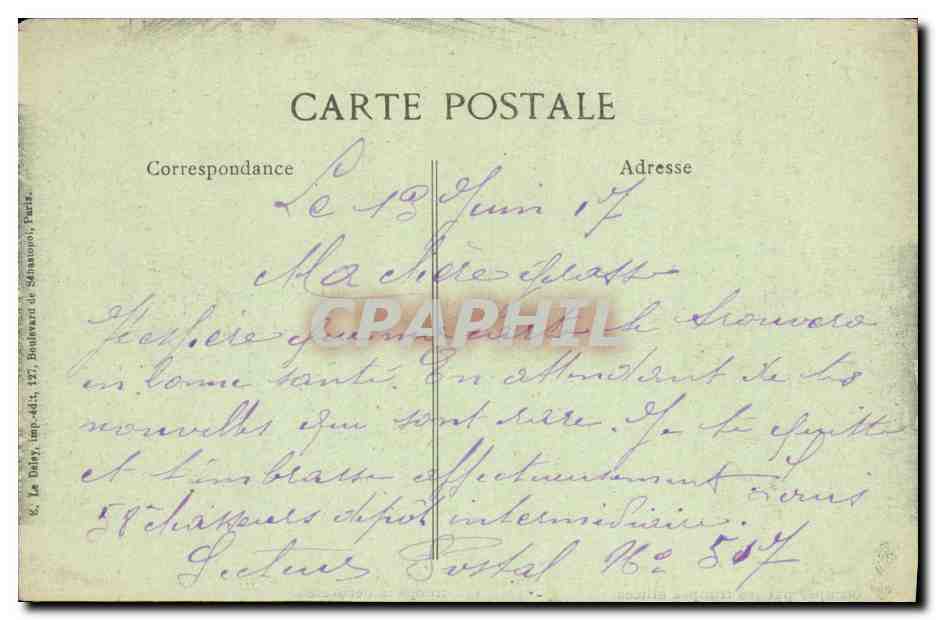 CARTE POSTALE
Correspondance
Adresse
Le 13 Juin 17
Ma chère
J'espère que ma carte te trouvera
en bonne santé. En attendant de tes
nouvelles qui sont rare. Je te quitte
et t'embrasse affectueusement Louis
58e chasseurs dépôt intermédiaire.
Secteur Postal No 517
E. Le Deley, imp.-édit, 127, Boulevard de Sébastopol, Paris.
CPAPHIL